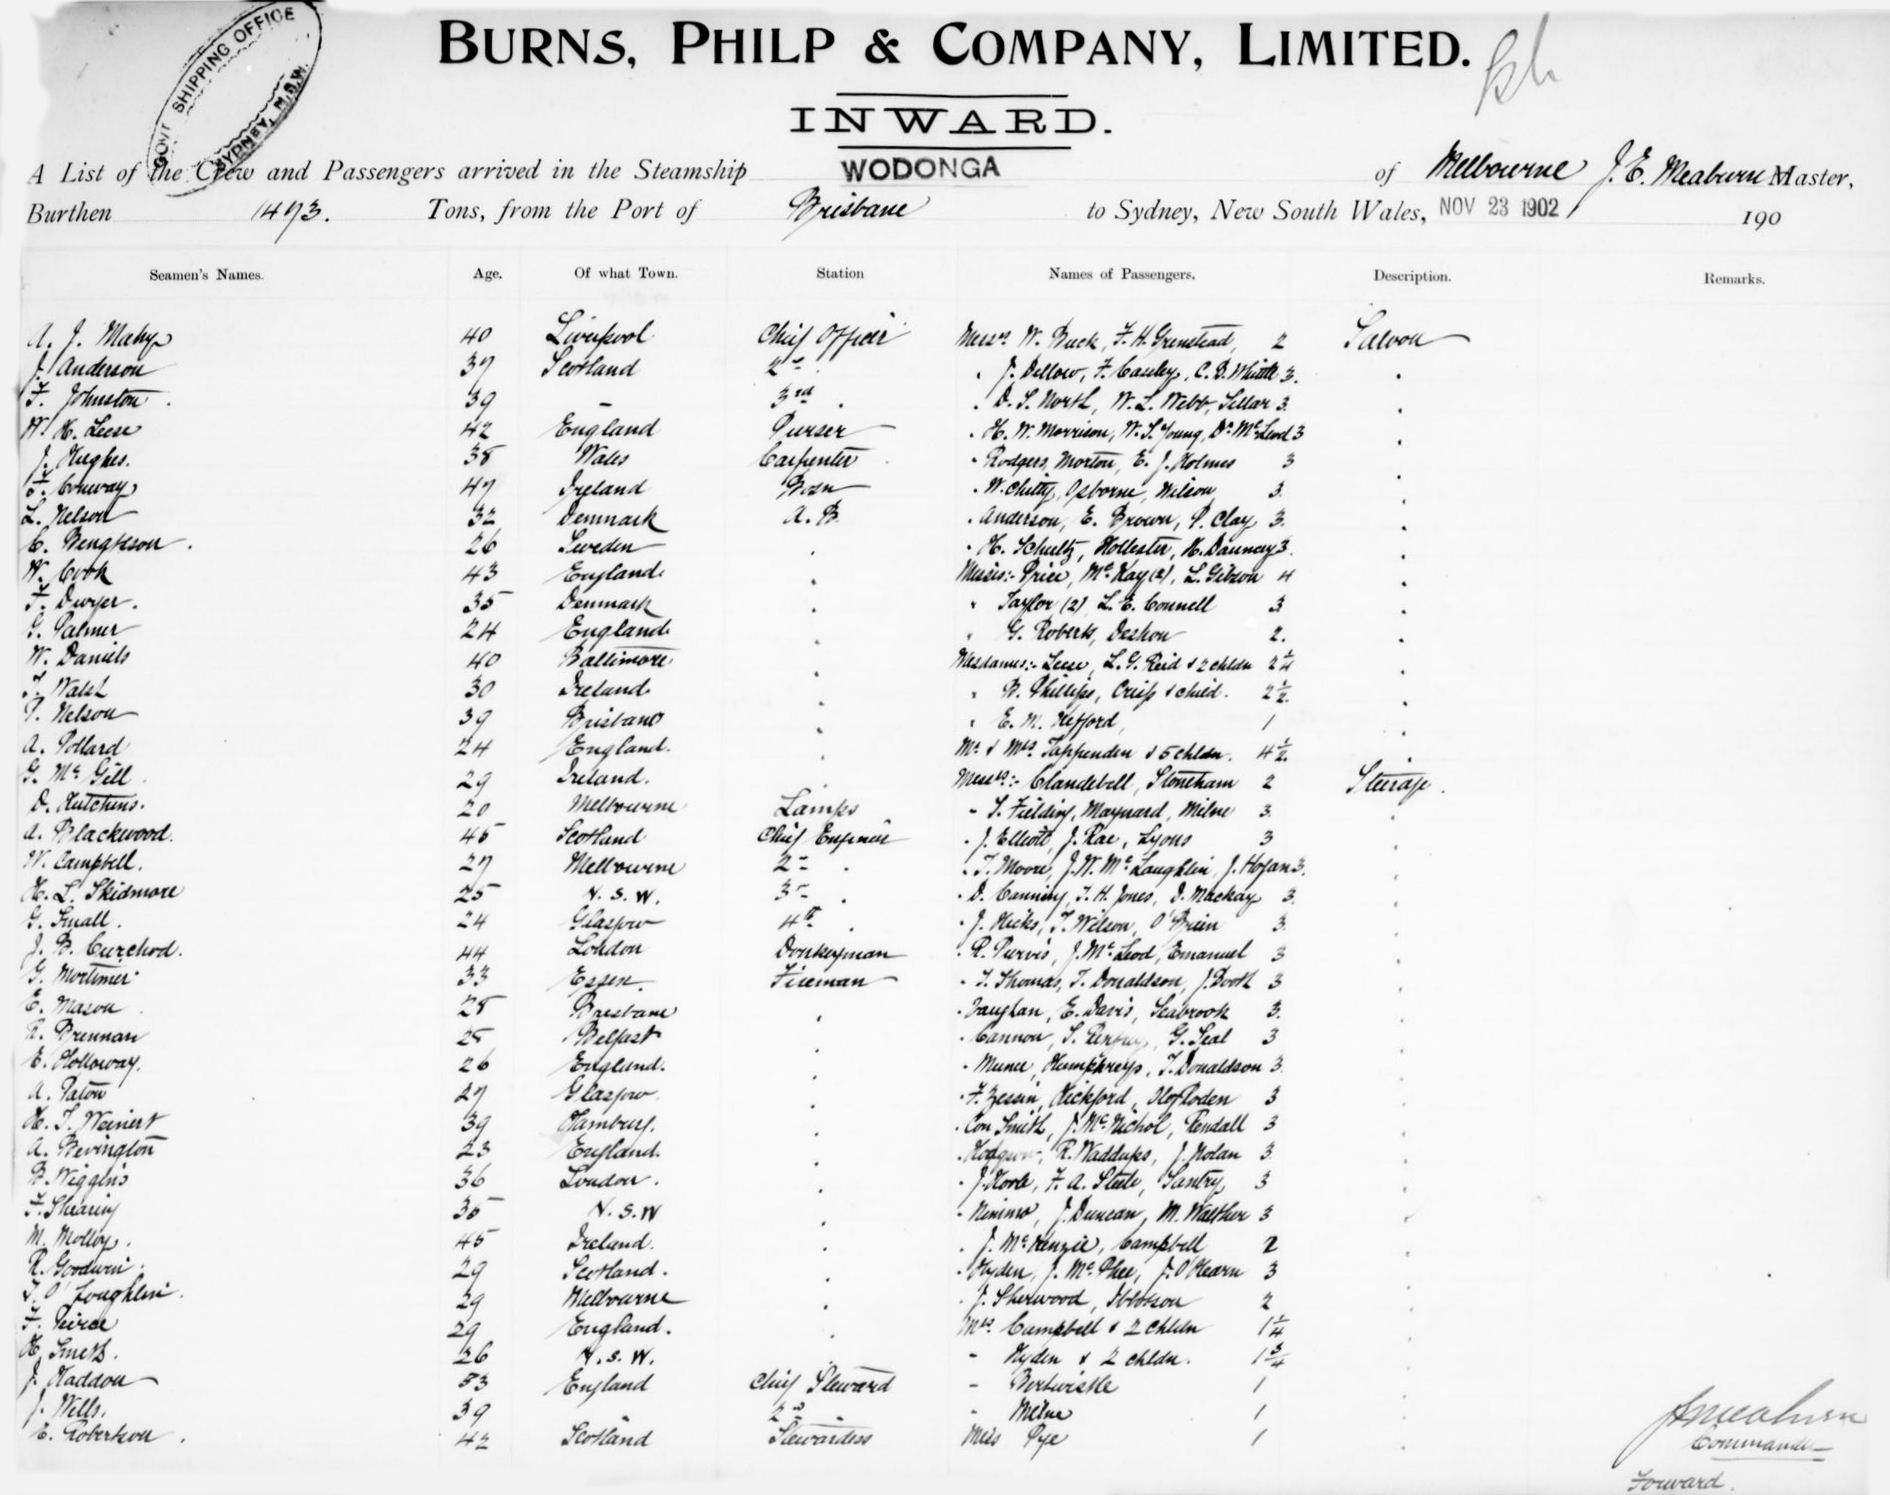 GOVT SHIPPING OFFICE
SYDNEY, N.S.W.
BURNS, PHILP & COMPANY, LIMITED.
INWARD.
A List of the Crew and Passengers arrived in the Steamship WODONGA of Melbourne J. E. Meaburn Master,
Burthen 1493. Tons, from the Port of Brisbane to Sydney, New South Wales, NOV 23 1902 190
Seamen's Names. Age. Of what Town. Station Names of Passengers. Description. Remarks.
A. J. Mahy 40 Liverpool Chief Officer Messrs W. Buck, F. H. Grenstead, 2 Saloon
J. Anderson 37 Scotland 2nd " J. Dellow, F. Cauley, C. B. Whittle 3.
F. Johnston. 39 — 3rd " D. S. North, W. L. Webb, Sellar 3.
W. H. Leese 42 England Purser " H. W. Morrison, W. S. Young, Dr McLeod 3
J. Hughes. 38 Wales Carpenter " Rodgers, Morton, E. J. Holmes 3
F. Conway 47 Ireland Bosn " W. Chitty, Osborne, Wilson 3.
L. Nelson 32 Denmark A. B. " Anderson, E. Brown, P. Clay 3.
C. Bengtson. 26 Sweden " H. Schultz, Hollester, H. Dauncey 3.
W. Cook 43 England. Misses:- Price, McKay (2), L. Gibson 4
F. Dwyer. 35 Denmark " Taylor (2) L. E. Connell 3
G. Palmer 24 England. " G. Roberts, Deshon 2.
W. Daniels 40 Baltimore Mesdames:- Leese, L. G. Reid & 2 chldn 2 1/4
T. Walsh 30 Ireland. " B. Phillips, Crisp & child. 2 1/2.
P. Nelson 39 Brisbane " E. M. Hefford, 1
A. Pollard 24 England. Mr & Mrs Tappenden & 5 chldn. 4 1/2.
G. McGill 29 Ireland. Messrs:- Clandebell, Stoneham 2 Steerage.
D. Hutchins. 20 Melbourne Lamps " S. Fielding, Maynard, Milne 3.
A. Blackwood. 45 Scotland Chief Engineer " J. Elliott, J. Rae, Lyons 3
W. Campbell. 27 Melbourne 2nd " T. Moore, J. W. McLaughlin, J. Hogan 3.
H. L. Skidmore 25 N. S. W. 3rd " D. Canning, T. H. Jones, D. Mackay 3.
G. Small. 24 Glasgow 4th " J. Hicks, T. Wilson, O'Brien 3.
J. B. Curchod. 44 London Donkeyman " R. Purvis, J. McLeod, Emanuel 3
G. Mortimer 33 Essen Fireman " T. Thomas, T. Donaldson, J. Booth 3
E. Mason 28 Brisbane " Vaughan, E. Davis, Seabrook 3.
R. Brennan 25 Belfast " Cannon, S. G. Seal 3
E. Holloway. 26 England. " Humphreys, T. Donaldson 3.
A. Paton 27 Glasgow " F. Zessin, Hickford, Olof Roden 3
H. T. Weinert 39 Hamburg. " Con Smith, J. McNichol, Kendall 3
A. Bevington 23 England. " Hodgson, R. Waddups, J. Nolan 3
B. Wiggins 36 London. " F. A. Steele, Santry 3
F. Shearing 35 N. S. W " Nimmo, J. Duncan, M. Walther 3
M. Molloy. 45 Ireland. " J. McKenzie, Campbell 2
R. Goodwin. 29 Scotland. " Hyden, J. McPhee, J. O'Hearn 3
T. O'Loughlin. 29 Melbourne " J. Sherwood, Ibbotson 2
F. Peirce 29 England. Mrs. Campbell & 2 chldn 1 1/4
H. Smith. 26 N. S. W. " Hyden & 2 chldn. 1 3/4
J. Haddon 53 England Chief Steward " Bertwistle 1
J. Wells. 39 " 2nd " " Milne 1
E. Robertson. 42 Scotland Stewardess Miss Pye 1
J. E. Meaburn
Commander
Forward.